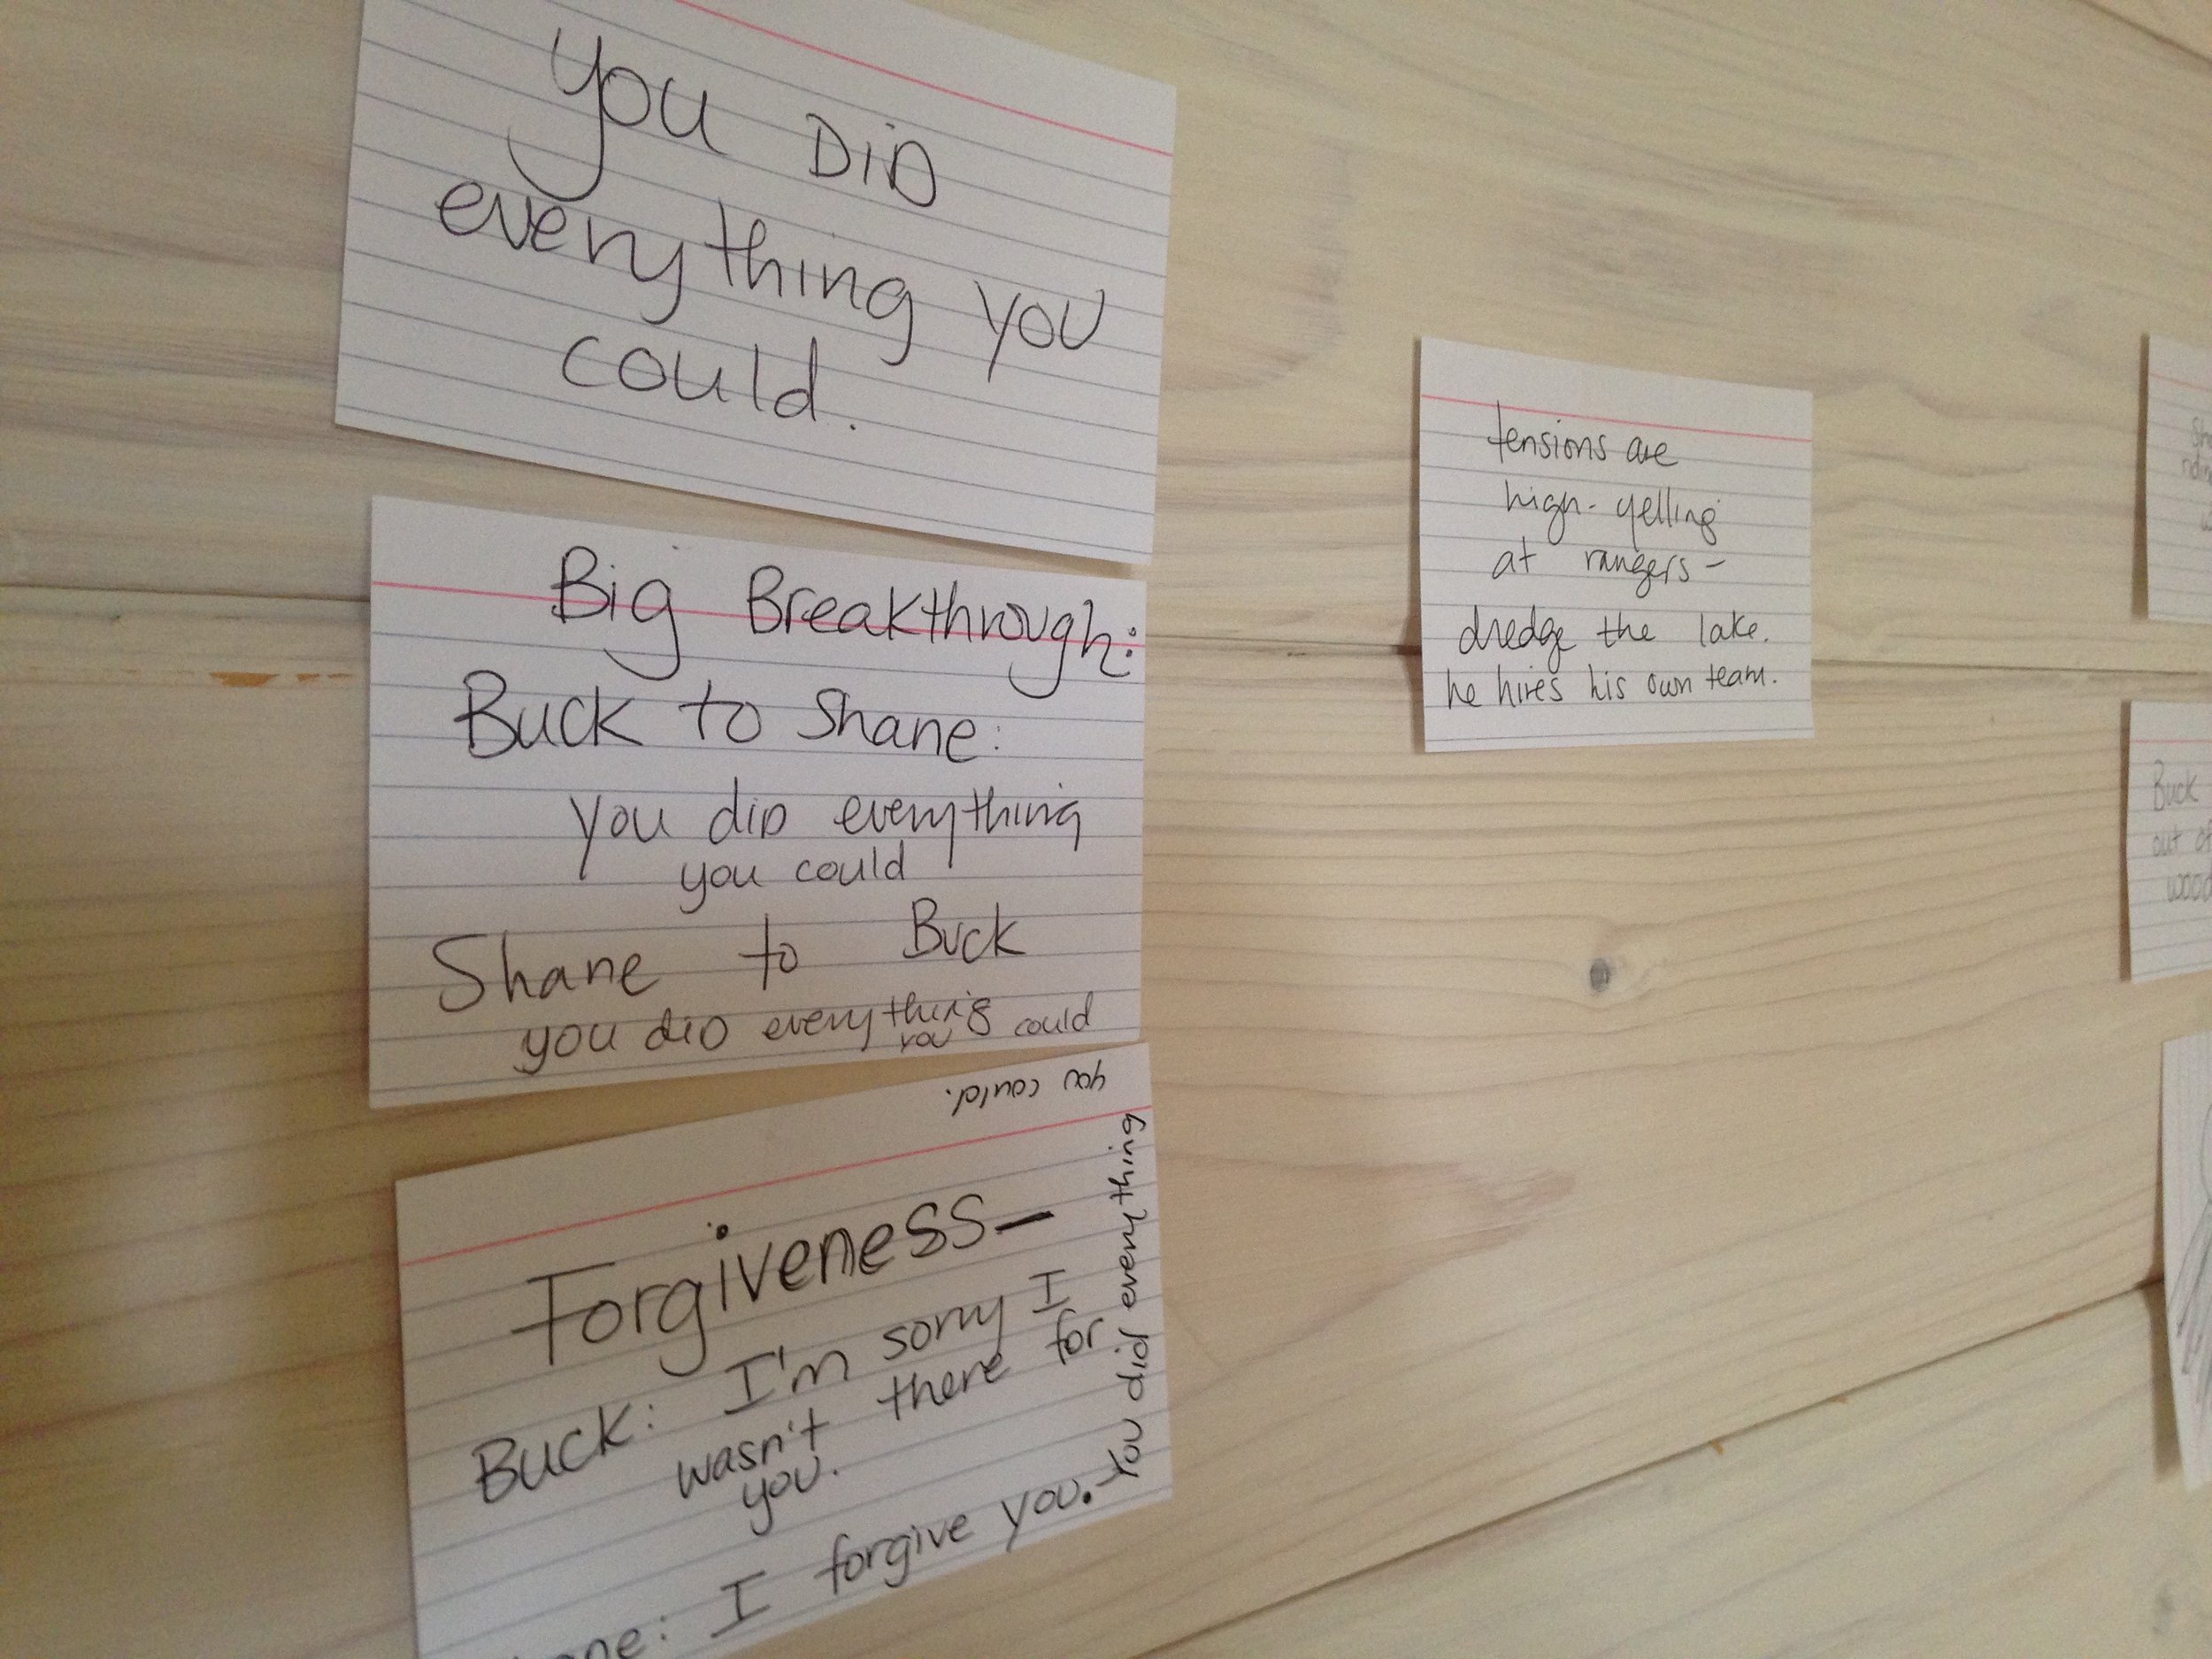 you DiD
everything you
could.
Big Breakthrough:
Buck to Shane:
you did everything
you could
Shane to Buck
you did everything could
you
Forgiveness-
Buck: I'm sorry I
wasn't there for
you.
I forgive you.-You did everything
you could.
tensions are
high- yelling
at rangers-
dredge the lake.
he hires his own team.
Buck
out of